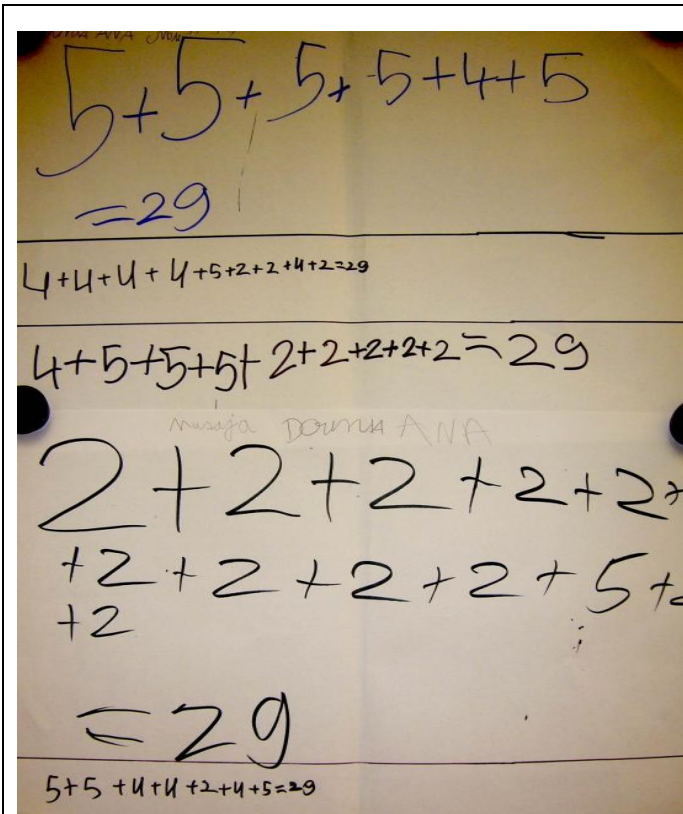 5+5+5+5+4+5
=29
4+4+4+4+5+2+2+4+2=29
4+5+5+5+2+2+2+2+2=29
DOUNIA ANA
2+2+2+2+2+
+2+2+2+2+5+
+2
=29
5+5+4+4+2+4+5=29